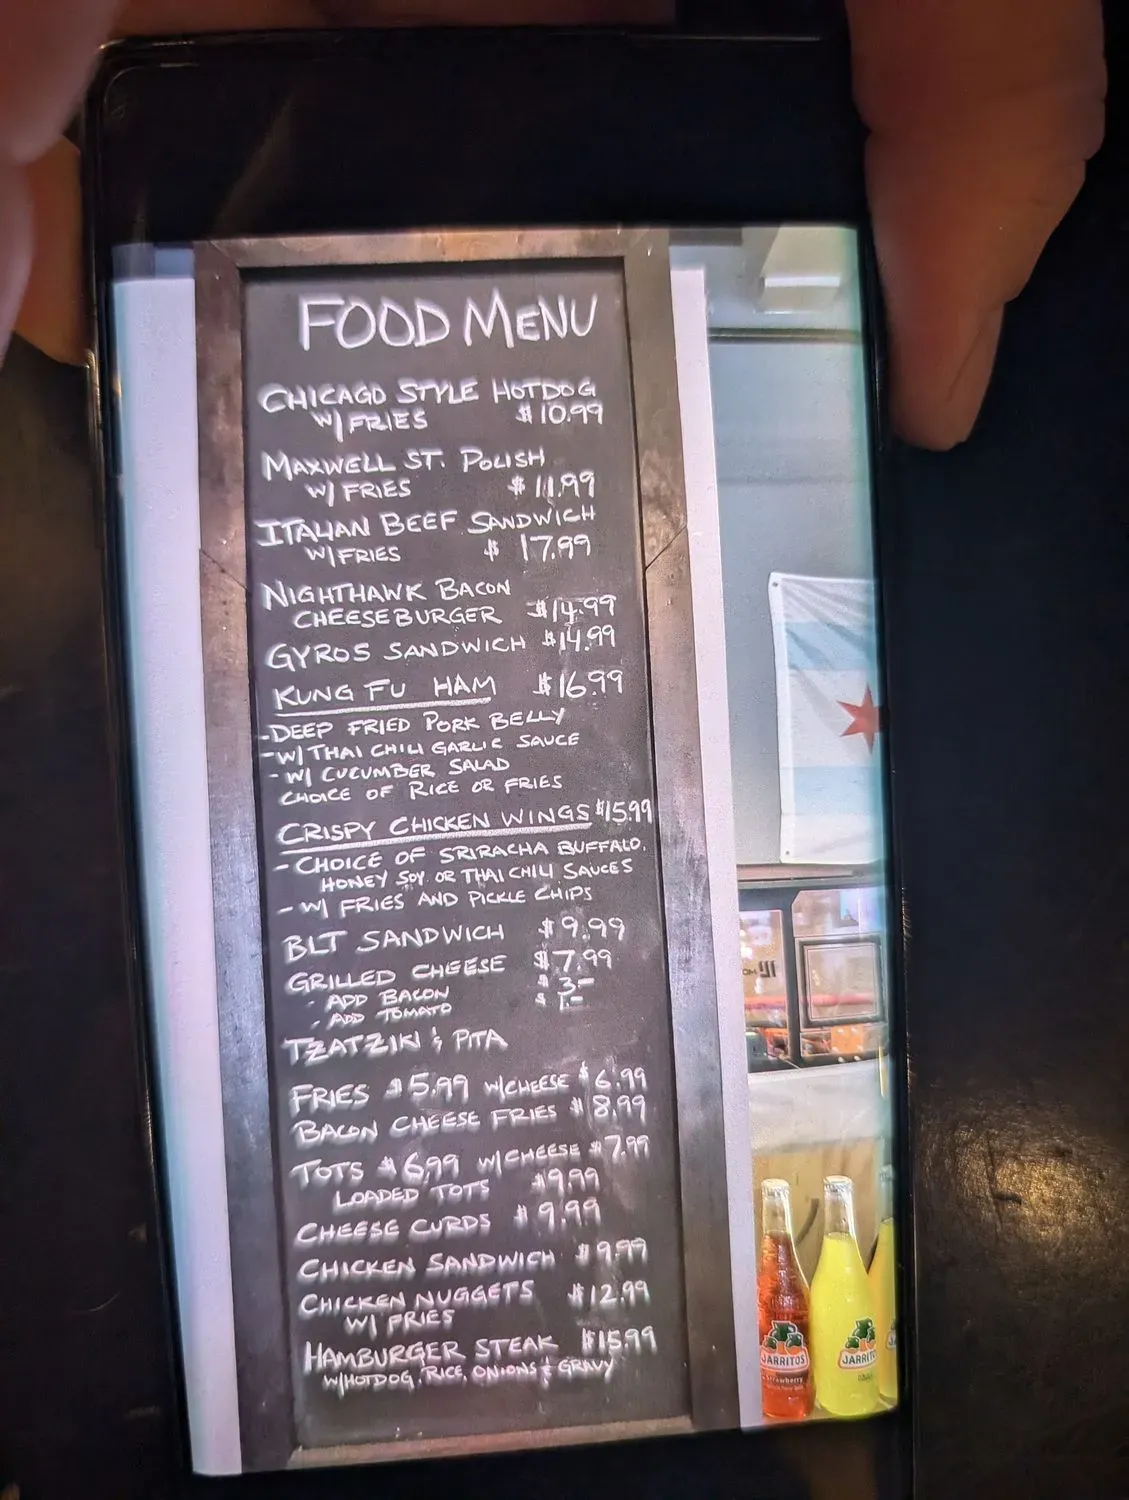 FOOD MENU
CHICAGO STYLE HOTDOG
W/ FRIES $10.99
MAXWELL ST. POLISH
W/ FRIES $11.99
ITALIAN BEEF SANDWICH
W/ FRIES $ 17.99
NIGHTHAWK BACON
CHEESEBURGER $14.99
GYROS SANDWICH $14.99
KUNG FU HAM $16.99
-DEEP FRIED PORK BELLY
-W/ THAI CHILI GARLIC SAUCE
- W/ CUCUMBER SALAD
CHOICE OF RICE OR FRIES
CRISPY CHICKEN WINGS $15.99
- CHOICE OF SRIRACHA BUFFALO,
HONEY SOY OR THAI CHILI SAUCES
- W/ FRIES AND PICKLE CHIPS
BLT SANDWICH $9.99
GRILLED CHEESE $7.99
- ADD BACON $3-
- ADD TOMATO $1-
TZATZIKI & PITA
FRIES $5.99 W/CHEESE $6.99
BACON CHEESE FRIES $8.99
TOTS $6.99 W/CHEESE $7.99
LOADED TOTS $9.99
CHEESE CURDS $9.99
CHICKEN SANDWICH $9.99
CHICKEN NUGGETS $12.99
W/ FRIES
HAMBURGER STEAK $15.99
W/HOTDOG, RICE, ONIONS & GRAVY
JARRITOS
Strawberry
JARRITOS